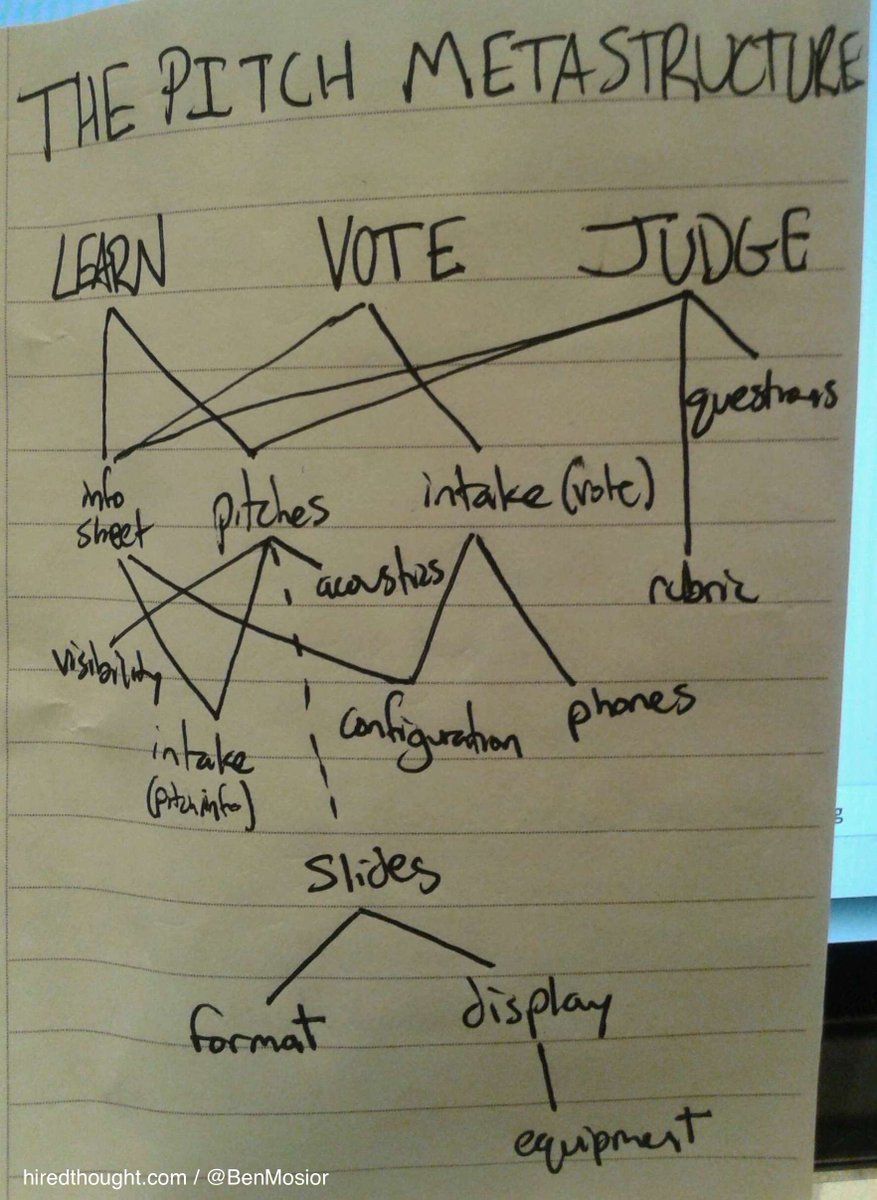 THE PITCH METASTRUCTURE
LEARN VOTE JUDGE
questions
info
sheet
pitches
intake (vote)
acoustics
rubric
visibility
configuration
phones
intake
(pitch info)
slides
format
display
equipment
hiredthought.com / @BenMosior